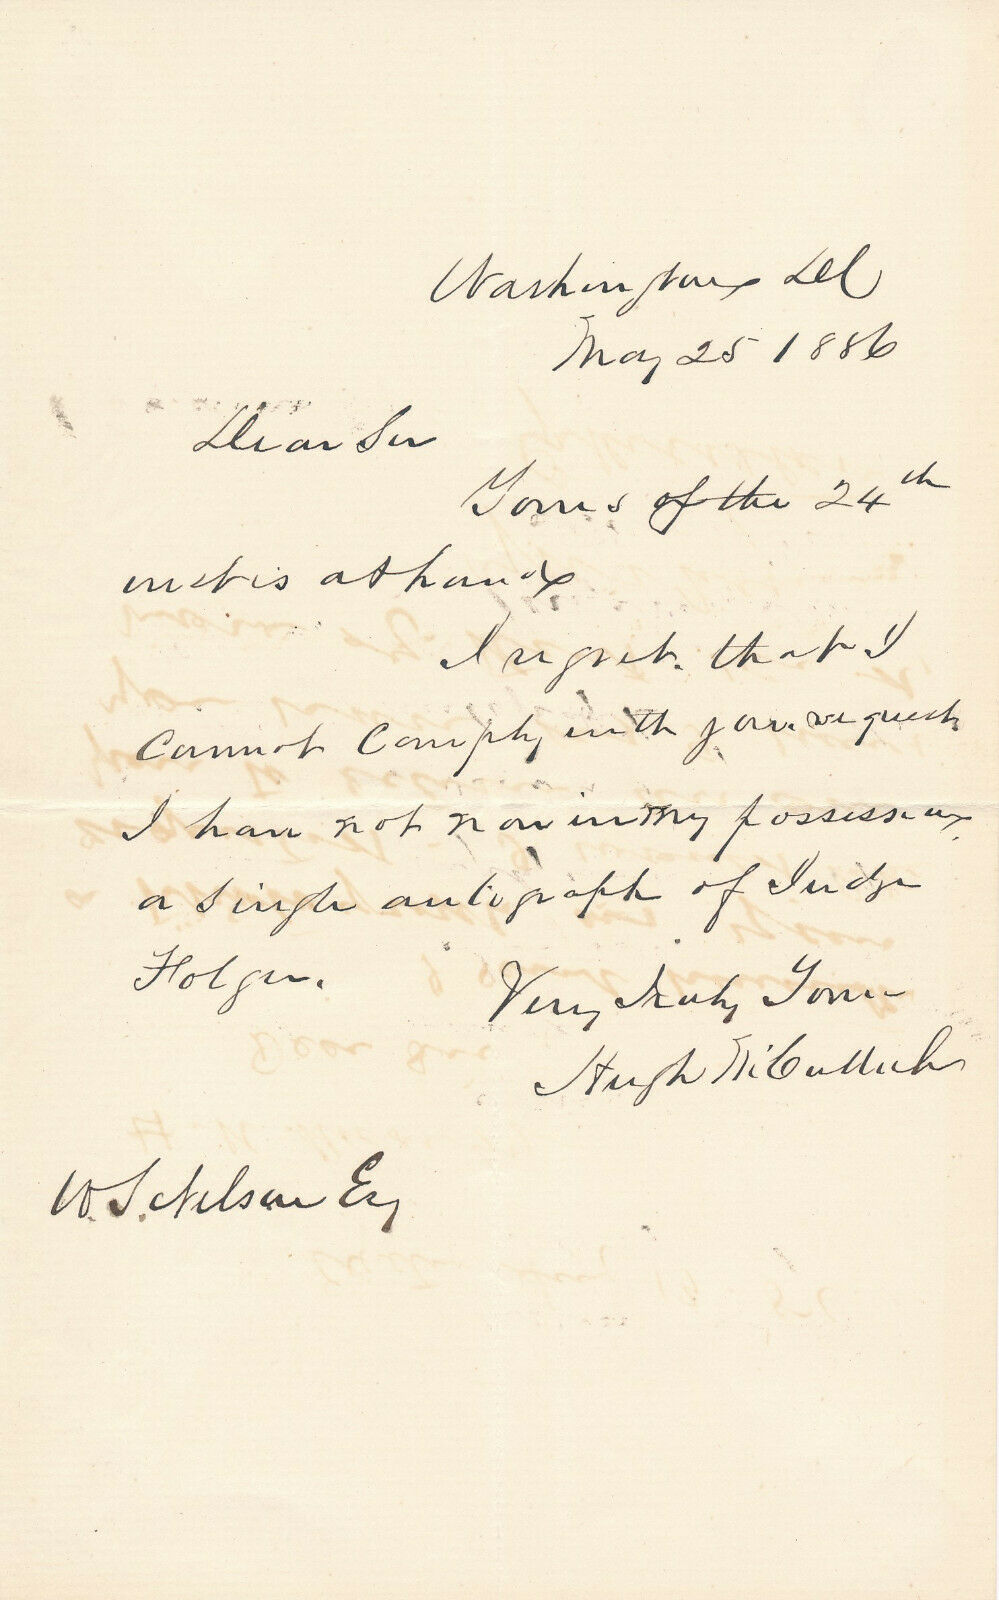 Washington DC
May 25 1886
Dear Sir
Yours of the 24th
inst is at hand
I regret that I
cannot comply with your request
I have not now in my possession
a single autograph of Judge
Folger.
Very Truly Yours
Hugh McCulloch
W. S. Nelson Esq